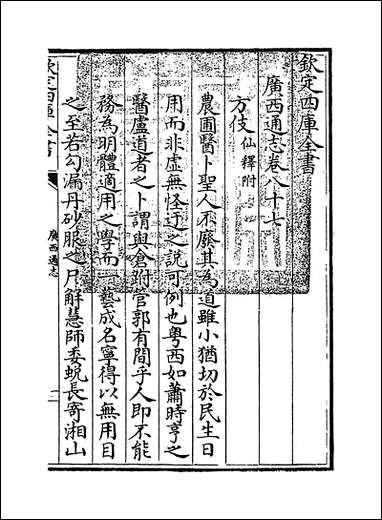 欽定四庫全書
廣西通志卷八十七
方伎仙釋附
農圃醫卜聖人不廢其為道雖小猶切於民生日
用而非虛無怪迂之說可例也粤西如蕭時亨之
醫盧道者之卜謂與倉跗管郭有間乎人即不能
務為明體適用之學而一藝成名寜得以無用目
之至若勾漏丹砂服之尸解慧師委蛻長寄湘山
廣西通志